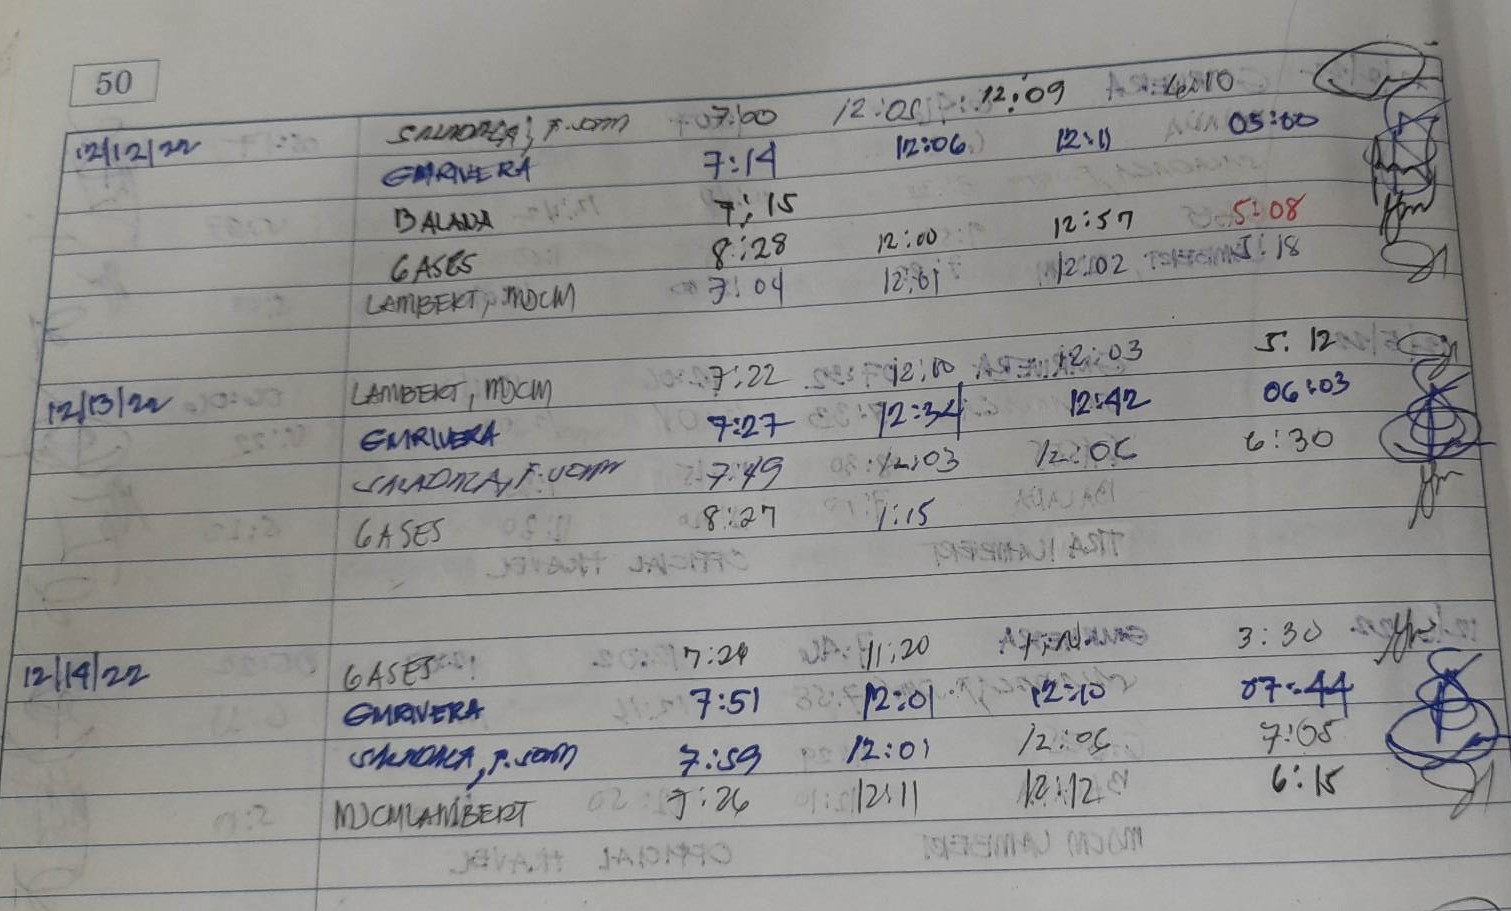 50
12/12/22 7:00 12:09
GMRIVERA 7:14 12:06 12:11 05:00
BALANA 7:15
GASES 8:28 12:00 12:57 5:08
LAMBERT, MJCM 7:04 12:01 12:02 5:18
12/13/22 LAMBERT, MJCM 7:22 12:00 12:03 5:12
GMRIVERA 7:27 12:34 12:42 06:03
7:49 12:03 12:06 6:30
GASES 8:27 1:15
12/14/22 GASES 7:24 11:20 3:30
GMRIVERA 7:51 12:01 12:10 07:44
7:59 12:01 12:06 7:05
MJCMLAMBERT 7:26 12:11 12:12 6:15